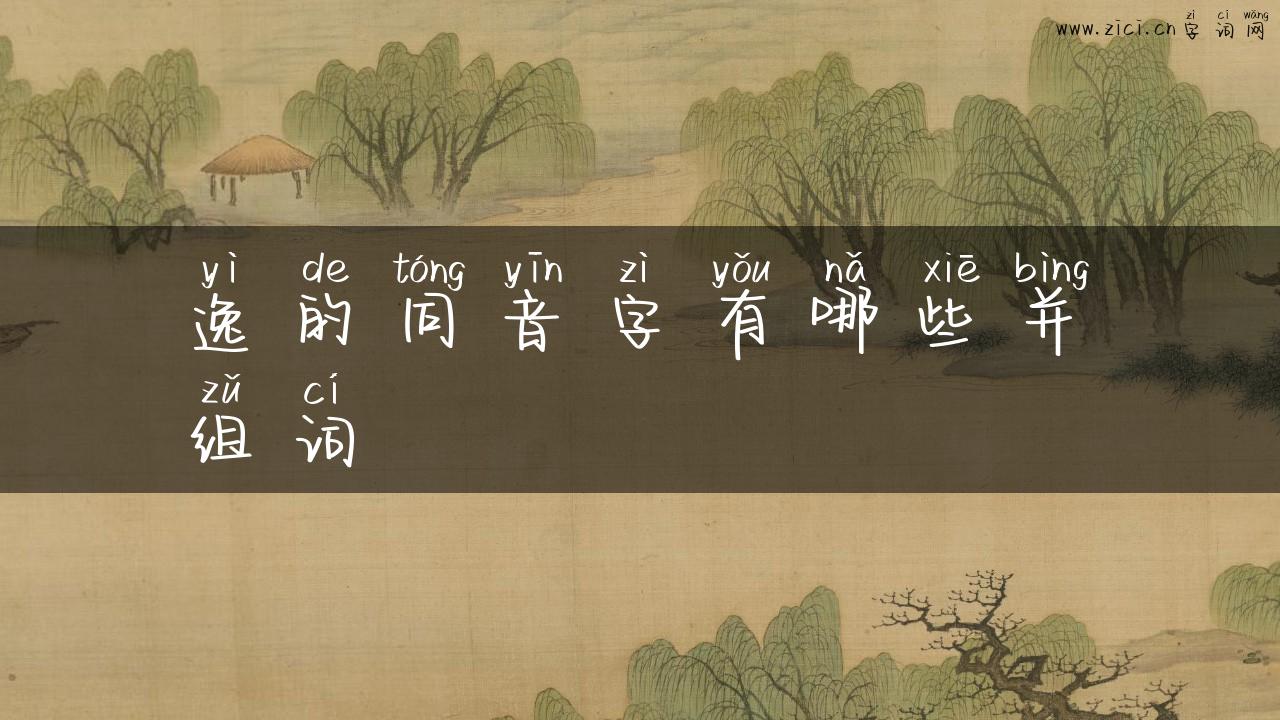 zì cí wǎng
www.zici.cn 字 词 网
yì de tóng yīn zì yǒu nǎ xiē bìng
逸 的 同 音 字 有 哪 些 并
zǔ cí
组 词